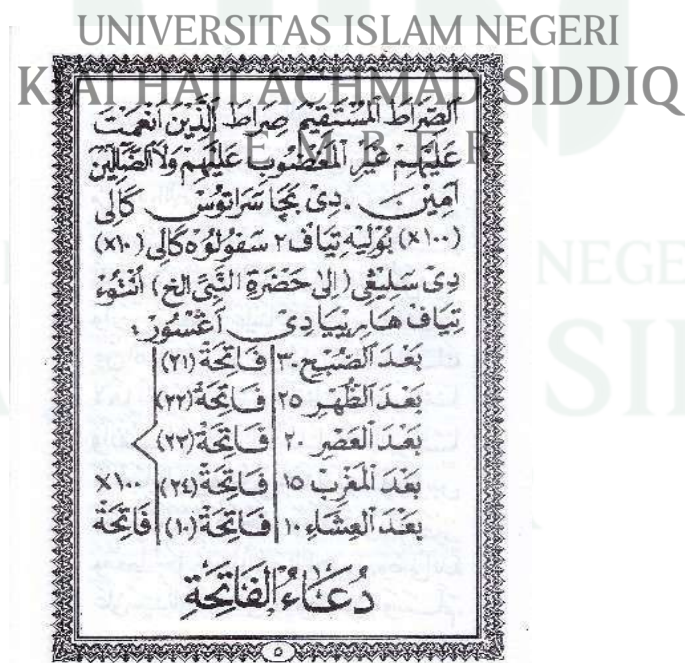 UNIVERSITAS ISLAM NEGERI
KIAI HAJI ACHMAD SIDDIQ
JEMBER
الصِّرَاطَ الْمُسْتَقِيْمَ صِرَاطَ الَّذِيْنَ اَنْعَمْتَ
عَلَيْهِمْ غَيْرِ الْمَغْضُوْبِ عَلَيْهِمْ وَلَا الضَّالِّيْنَ
اٰمِيْنَ . دِى بَچَا سَرَاتُوْسْ كَالِى
(١٠٠×) بُوْلَيْه تِيَاف٢ سَفُوْلُوْه كَالِى (١٠×)
دِى سَلِيْڠِى (اِلٰى حَضْرَةِ النَّبِيِّ الخ) اُنْتُوْءْ
تِيَافْ هَارِيْپَا دِى اَڠْسُوْرْ :
بَعْدَ الصُّبْحِ ٣٠ فَاتِحَةْ (٢١)
بَعْدَ الظُّهْرِ ٢٥ فَاتِحَةْ (٢٢)
بَعْدَ الْعَصْرِ ٢٠ فَاتِحَةْ (٢٣)
بَعْدَ الْمَغْرِبْ ١٥ فَاتِحَةْ (٢٤) ١٠٠×
بَعْدَ الْعِشَاءِ ١٠ فَاتِحَةْ (١٠) فَاتِحَةْ
دُعَاءُ الْفَاتِحَةِ
٥
NEGE
SI